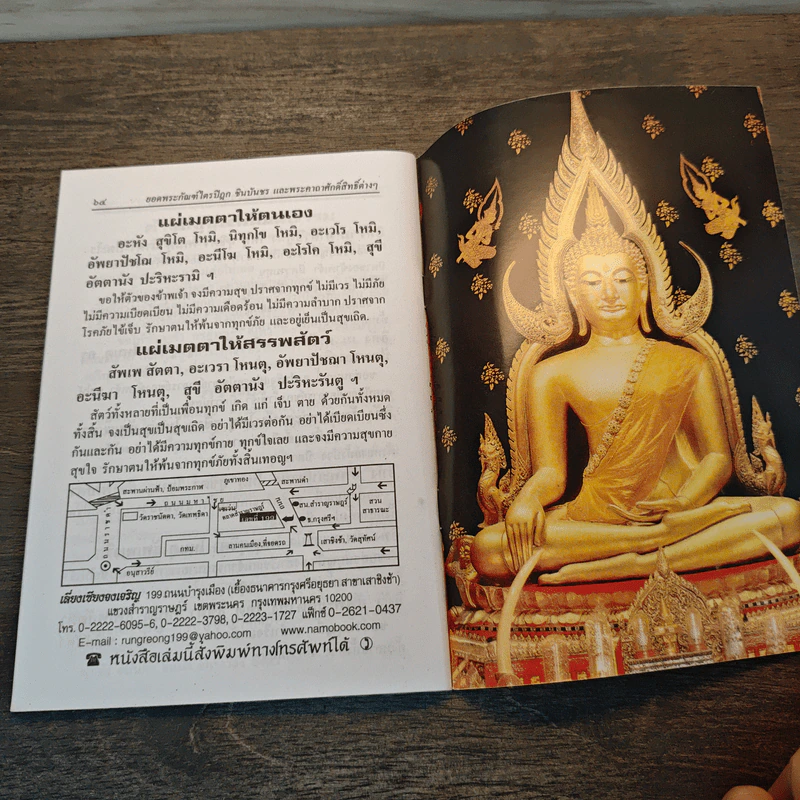 ๖๔ ยอดพระกัณฑ์ไตรปิฎก ชินบัญชร และพระคาถาศักดิ์สิทธิ์ต่างๆ
แผ่เมตตาให้ตนเอง
อะหัง สุขิโต โหมิ, นิททุกโข โหมิ, อะเวโร โหมิ,
อัพยาปัชโฌ โหมิ, อะนีโฆ โหมิ, อะโรโค โหมิ, สุขี
อัตตานัง ปะริหะรามิ ฯ
ขอให้ตัวของข้าพเจ้า จงมีความสุข ปราศจากทุกข์ ไม่มีเวร ไม่มีภัย
ไม่มีความเบียดเบียน ไม่มีความเดือดร้อน ไม่มีความลำบาก ปราศจาก
โรคภัยไข้เจ็บ รักษาตนให้พ้นจากทุกข์ภัย และอยู่เย็นเป็นสุขเถิด.
แผ่เมตตาให้สรรพสัตว์
สัพเพ สัตตา, อะเวรา โหนตุ, อัพยาปัชฌา โหนตุ,
อะนีฆา โหนตุ, สุขี อัตตานัง ปะริหะรันตู ฯ
สัตว์ทั้งหลายที่เป็นเพื่อนทุกข์ เกิด แก่ เจ็บ ตาย ด้วยกันทั้งหมด
ทั้งสิ้น จงเป็นสุขเป็นสุขเถิด อย่าได้มีเวรต่อกัน อย่าได้เบียดเบียนซึ่ง
กันและกัน อย่าได้มีความทุกข์กาย ทุกข์ใจเลย และจงมีความสุขกาย
สุขใจ รักษาตนให้พ้นจากทุกข์ภัยทั้งสิ้นเทอญฯ
ภูเขาทอง
สะพานดำ
สะพานผ่านฟ้า, ป้อมพระกาฬ
ถนนมหา
สน.สำราญราษฎร์
สวน
สาธารณะ
วัดราชนัดดา, วัดเทพธิดา
ธ.กรุงศรีฯ
ถนนราชดำ
กทม.
ลานคนเมือง,ที่จอดรถ
เสาชิงช้า, วัดสุทัศน์
อนุสาวรีย์
เลี่ยงเซียงจงเจริญ 199 ถนนบำรุงเมือง (เยื้องธนาคารกรุงศรีอยุธยา สาขาเสาชิงช้า)
แขวงสำราญราษฎร์ เขตพระนคร กรุงเทพมหานคร 10200
โทร. 0-2222-6095-6, 0-2222-3798, 0-2223-1727 แฟ็กซ์ 0-2621-0437
E-mail : rungreong199@yahoo.com www.namobook.com
☎ หนังสือเล่มนี้สั่งพิมพ์ทางโทรศัพท์ได้